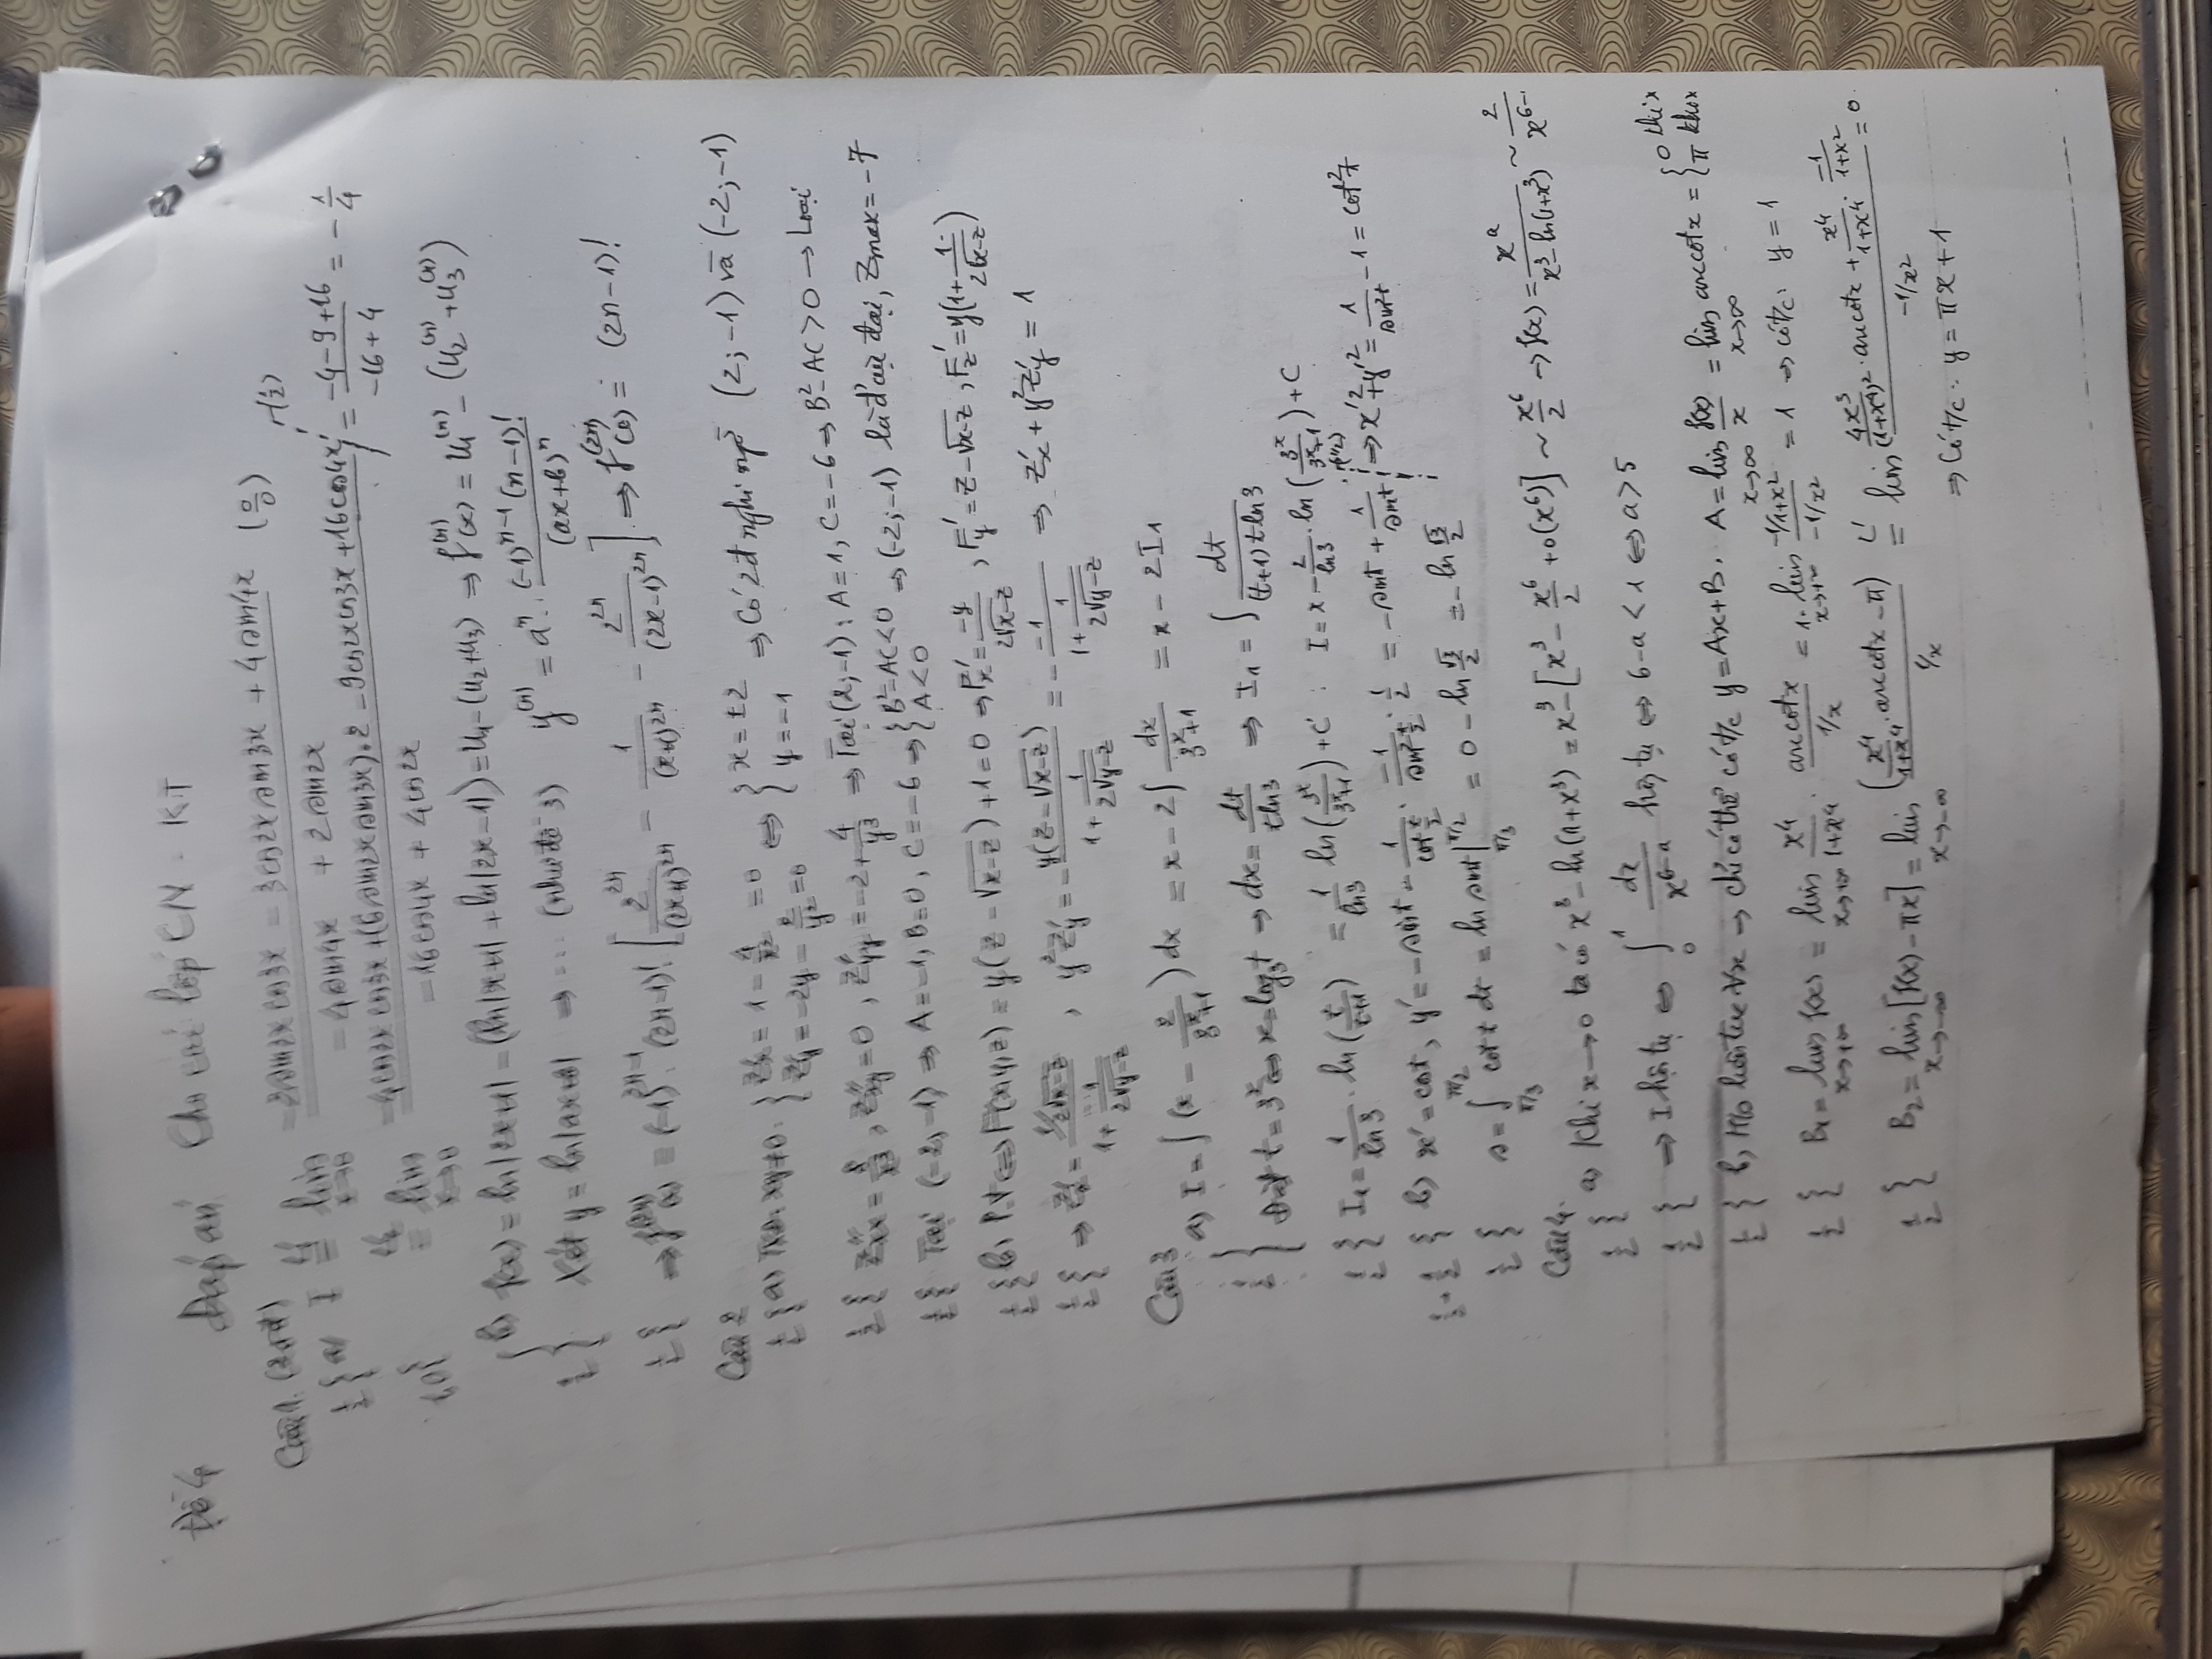 Đề 4 Đáp án Cho các lớp CN - KT
Câu 1. (2,5đ)
½ { a) I = lim x→0 (-2sin2x cos3x - 3cos2x sin3x + 4sin4x) / (-4sin4x + 2sin2x) (0/0)
= lim x→0 (-4cos2x cos3x + (6sin2x sin3x).2 - 9cos2x cos3x + 16cos4x) / (-16cos4x + 4cos2x) = (-4-9+16)/(-16+4) = -1/4
b) f(x) = ln|2x+1| - (ln|x+1| + ln|2x-1|) = u₁ - (u₂+u₃) ⇒ f⁽ⁿ⁾(x) = u₁⁽ⁿ⁾ - (u₂⁽ⁿ⁾ + u₃⁽ⁿ⁾)
½ { Xét y = ln|ax+b| ⇒ ... (như đề 3) y⁽ⁿ⁾ = aⁿ. (-1)ⁿ⁻¹(n-1)! / (ax+b)ⁿ
½ { ⇒ f⁽²ⁿ⁾(x) = (-1)²ⁿ⁻¹.(2n-1)! [2²ⁿ/(2x+1)²ⁿ - 1/(x+1)²ⁿ - 2²ⁿ/(2x-1)²ⁿ] ⇒ f⁽²ⁿ⁾(0) = (2n-1)!
Câu 2
½ { a) TXĐ: xy≠0. { z'x = 1 - 4/x² = 0 z'y = -2y - 2/y² = 0 ⇔ { x = ±2 y = -1 ⇒ Có 2đ nghi ngờ (2;-1) và (-2;-1)
½ { z''xx = 8/x³, z''xy = 0, z''yy = -2 + 4/y³ ⇒ Tại (2;-1): A=1, C=-6 ⇒ B²-AC>0 → Loại
½ { Tại (-2,-1) ⇒ A=-1, B=0, C=-6 ⇒ { B²-AC<0 A<0 ⇒ (-2;-1) là đ cực đại, Zmax = -7
½ { b) P.T ⇔ F(x,y,z) = y(z - √(x-z)) + 1 = 0 ⇒ F'x = -y/(2√(x-z)), F'y = z - √(x-z), F'z = y(1 + 1/(2√(x-z)))
½ { ⇒ z'x = (1/2√(x-z)) / (1 + 1/(2√(y-z))), y²z'y = - y(z-√(x-z)) / (1 + 1/(2√(y-z))) = - (-1) / (1 + 1/(2√(y-z))) ⇒ z'x + y²z'y = 1
Câu 3
a) I = ∫(x - 2/(3ˣ+1))dx = x - 2∫ dx/(3ˣ+1) = x - 2I₁
½ { Đặt t = 3ˣ ⇔ x = log₃t → dx = dt/(t ln3) ⇒ I₁ = ∫ dt/((t+1) t ln3)
½ { I₁ = 1/ln3 . ln(t/(t+1)) = 1/ln3 ln(3ˣ/(3ˣ+1)) + C : I = x - 2/ln3 . ln(3ˣ/(3ˣ+1)) + C
½ + ½ { b) x' = cost, y' = -sint - 1/cot(t/2) . -1/sin²(t/2) . 1/2 = -sint + 1/sint ⇒ x'² + y'² = 1/sin²t - 1 = cot²t
½ { s = ∫ π/3 π/2 cot t dt = ln sint | π/3 π/2 = 0 - ln √3/2 = -ln √3/2
Câu 4.
½ { a) Khi x→0 ta có x³ - ln(1+x³) = x³ - [x³ - x⁶/2 + o(x⁶)] ~ x⁶/2 → f(x) = xᵃ/(x³ - ln(1+x³)) ~ 2/x⁶⁻
½ { ⇒ I hội tụ ⇔ ∫ 0 1 dx/x⁶⁻ᵃ hội tụ ⇔ 6-a < 1 ⇔ a > 5
½ { b) liên tục ∀x → chỉ có thể có t/c y = Ax+B. A = lim x→∞ f(x)/x = lim x→∞ arccotx = { 0 khi x π khi x
½ { B₁ = lim x→+∞ f(x) = lim x→+∞ x⁴/(1+x⁴) . arccotx/(1/x) = 1. lim x→+∞ (-1/1+x²)/(-1/x²) = 1 ⇒ có t/c: y = 1
½ { B₂ = lim x→-∞ [f(x) - πx] = lim x→-∞ (x⁴/(1+x⁴) . arccotx - π)/(1/x) L' = lim (4x³/(1+x⁴)² . arccotx + x⁴/(1+x⁴) . -1/(1+x²)) / (-1/x²) = 0.
⇒ Có t/c: y = πx + 1